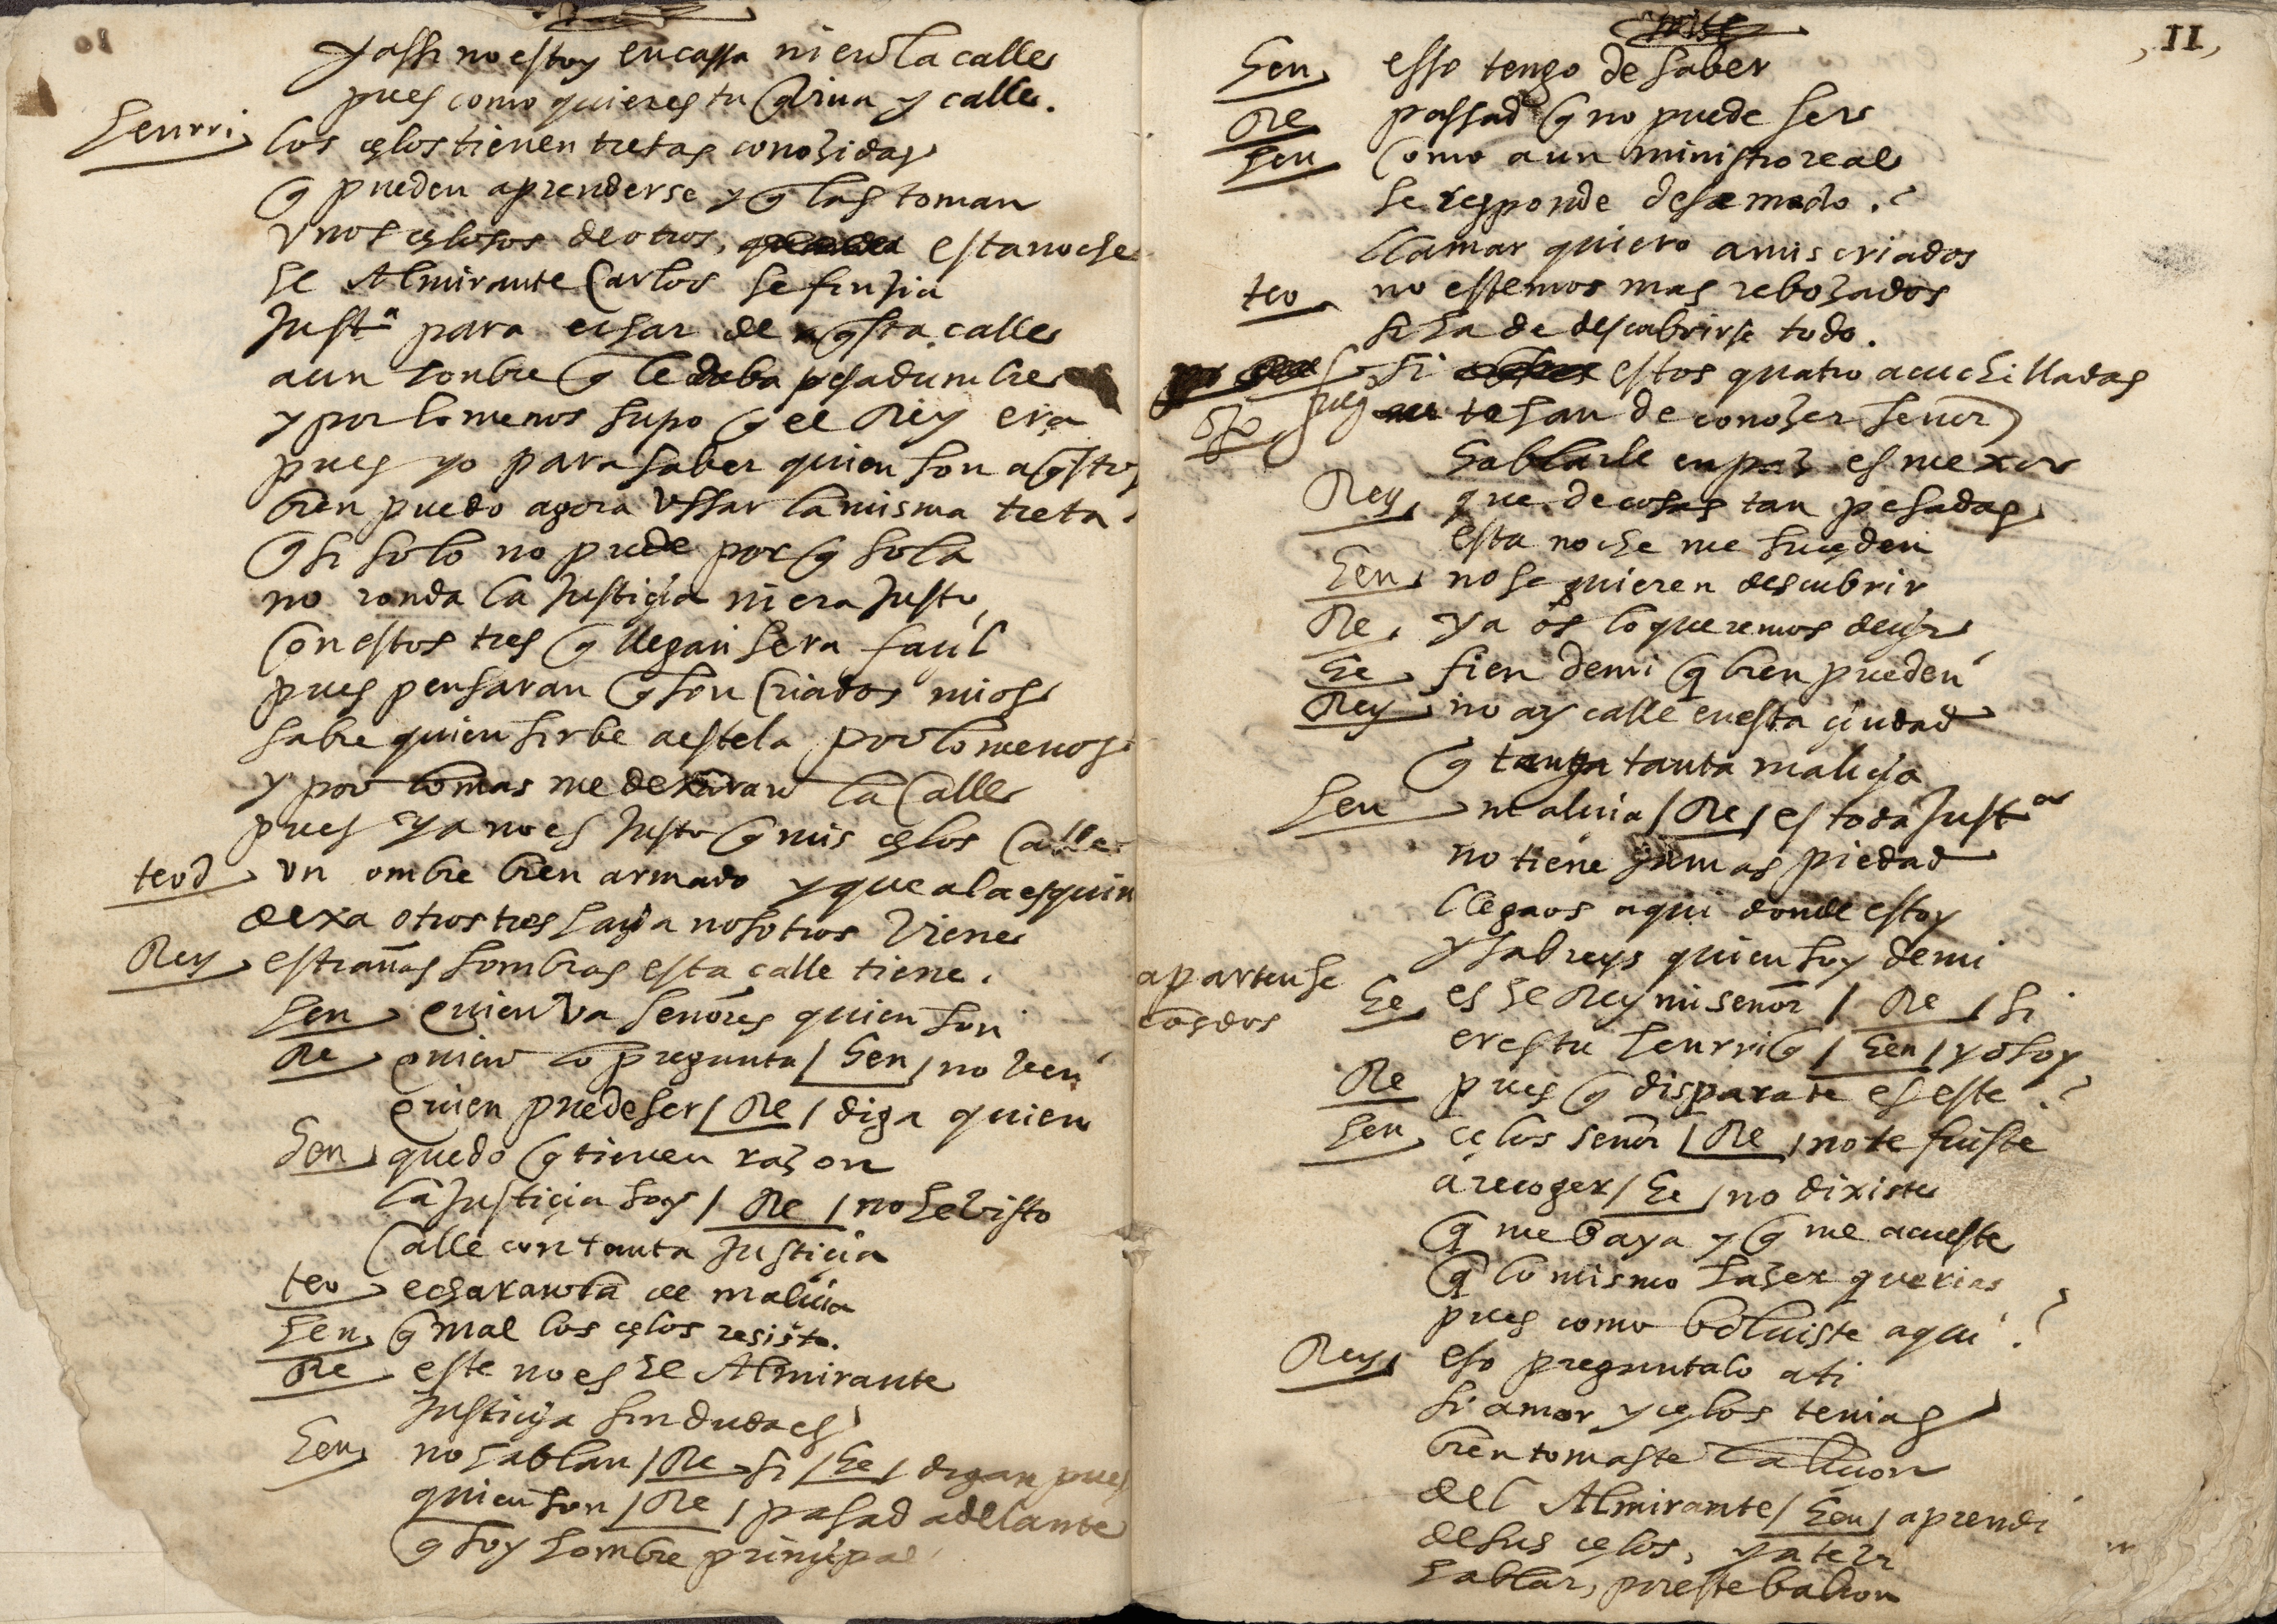 y assi no estoy en cassa ni en la calle
pues como quieres tu q̃ viua y calle.
henrri los çelos tienen tretas conozidas
q̃ pueden aprenderse y q̃ las toman
vnos çelosos de otros, esta noche
el Almirante Carlos se finjia
Justa para echar de aq̃sta calle
a un honbre q̃ le daba pesadumbre
y por lo menos supo q̃ el Rey era
pues yo para saber quien son aq̃stos
bien puedo agora vssar la misma treta
q̃ si solo no pude por q̃ sola
no ronda la Justiçia ni era Justo
con estos tres q̃ llegan sera façil
pues pensaran q̃ son criados mios
sabre quien sirbe a estela por lo menos
y por lo mas me dexaran la calle
pues ya no es Justo q̃ mis çelos calle
teod vn ombre bien armado y que a la esquin
dexa otros tres haçia nosotros viene
Rey estrañas sombras esta calle tiene.
hen quien va señores quien son
Re quien lo pregunta / hen / no veen
quien puede ser / Re / diga quien
hen quedo q̃ tienen razon
la Justiçia soy / Re / no he visto
calle con tanta Justiçia
teo echaranla de maliçia
hen q̃ mal los çelos resisto.
Re este no es el Almirante
Justiçia sin duda es
hen no hablan / Re si / he / digan pues
quien son / Re / pasad adelante
q̃ soy hombre prinçipal
11
hen esso tengo de saber
Re passad q̃ no puede ser
hen como a un ministro real
se responde dese modo.?
llamar quiero a mis criados
teo no estemos mas rebozados
si ha de descubrirse todo.
si estos quatro acuchilladas
te han de conozer señor
hablarle en paz es mexor
Rey que de cosas tan pesadas
esta noche me suçeden
hen no se quieren descubrir
Re ya os lo queremos deçir
he fien de mi q̃ bien pueden
Rey no ay calle en esta çiudad
q̃ tenga tanta maliçia
hen maliçia / Re / es toda Justa
no tiene jamas piedad
llegaos aqui donde estoy
y sabreys quien soy de mi
apartense
los dos
he es el Rey mi señor / Re / si
eres tu henrriq̃ / hen / yo soy
Re pues q̃ disparate es este?
hen çelos señor / Re / no te fuiste
a recoger / he / no dixiste
q̃ me baya y q̃ me acueste
q̃ lo mismo hazer querias
pues como bolviste aqui?
Rey eso preguntalo a ti
si amor y çelos tenias
bien tomaste la liçion
del Almirante / hen / aprendi
de sus çelos, ya te vi
hablar, por este balcon